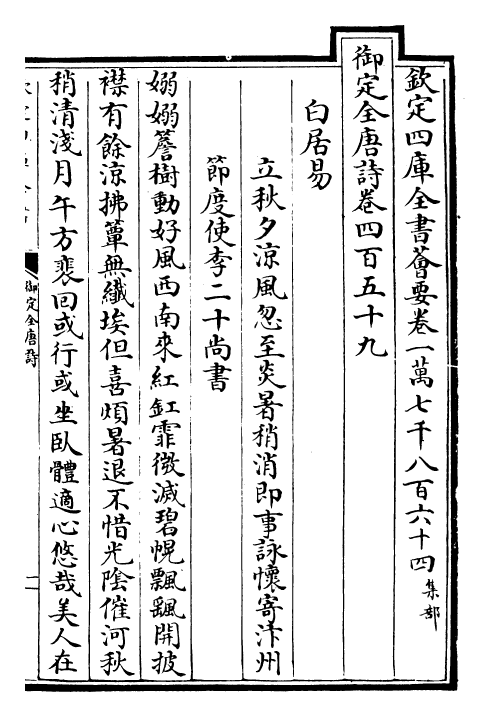 欽定四庫全書薈要卷一萬七千八百六十四 集部
御定全唐詩卷四百五十九
白居易
立秋夕涼風忽至炎暑稍消即事詠懷寄汴州
節度使李二十尚書
嫋嫋簷樹動好風西南來紅缸霏微滅碧幌飄颻開披
襟有餘涼拂簟無纖埃但喜煩暑退不惜光陰催河秋
稍清淺月午方裴回或行或坐臥體適心悠哉美人在
御定全唐詩
一